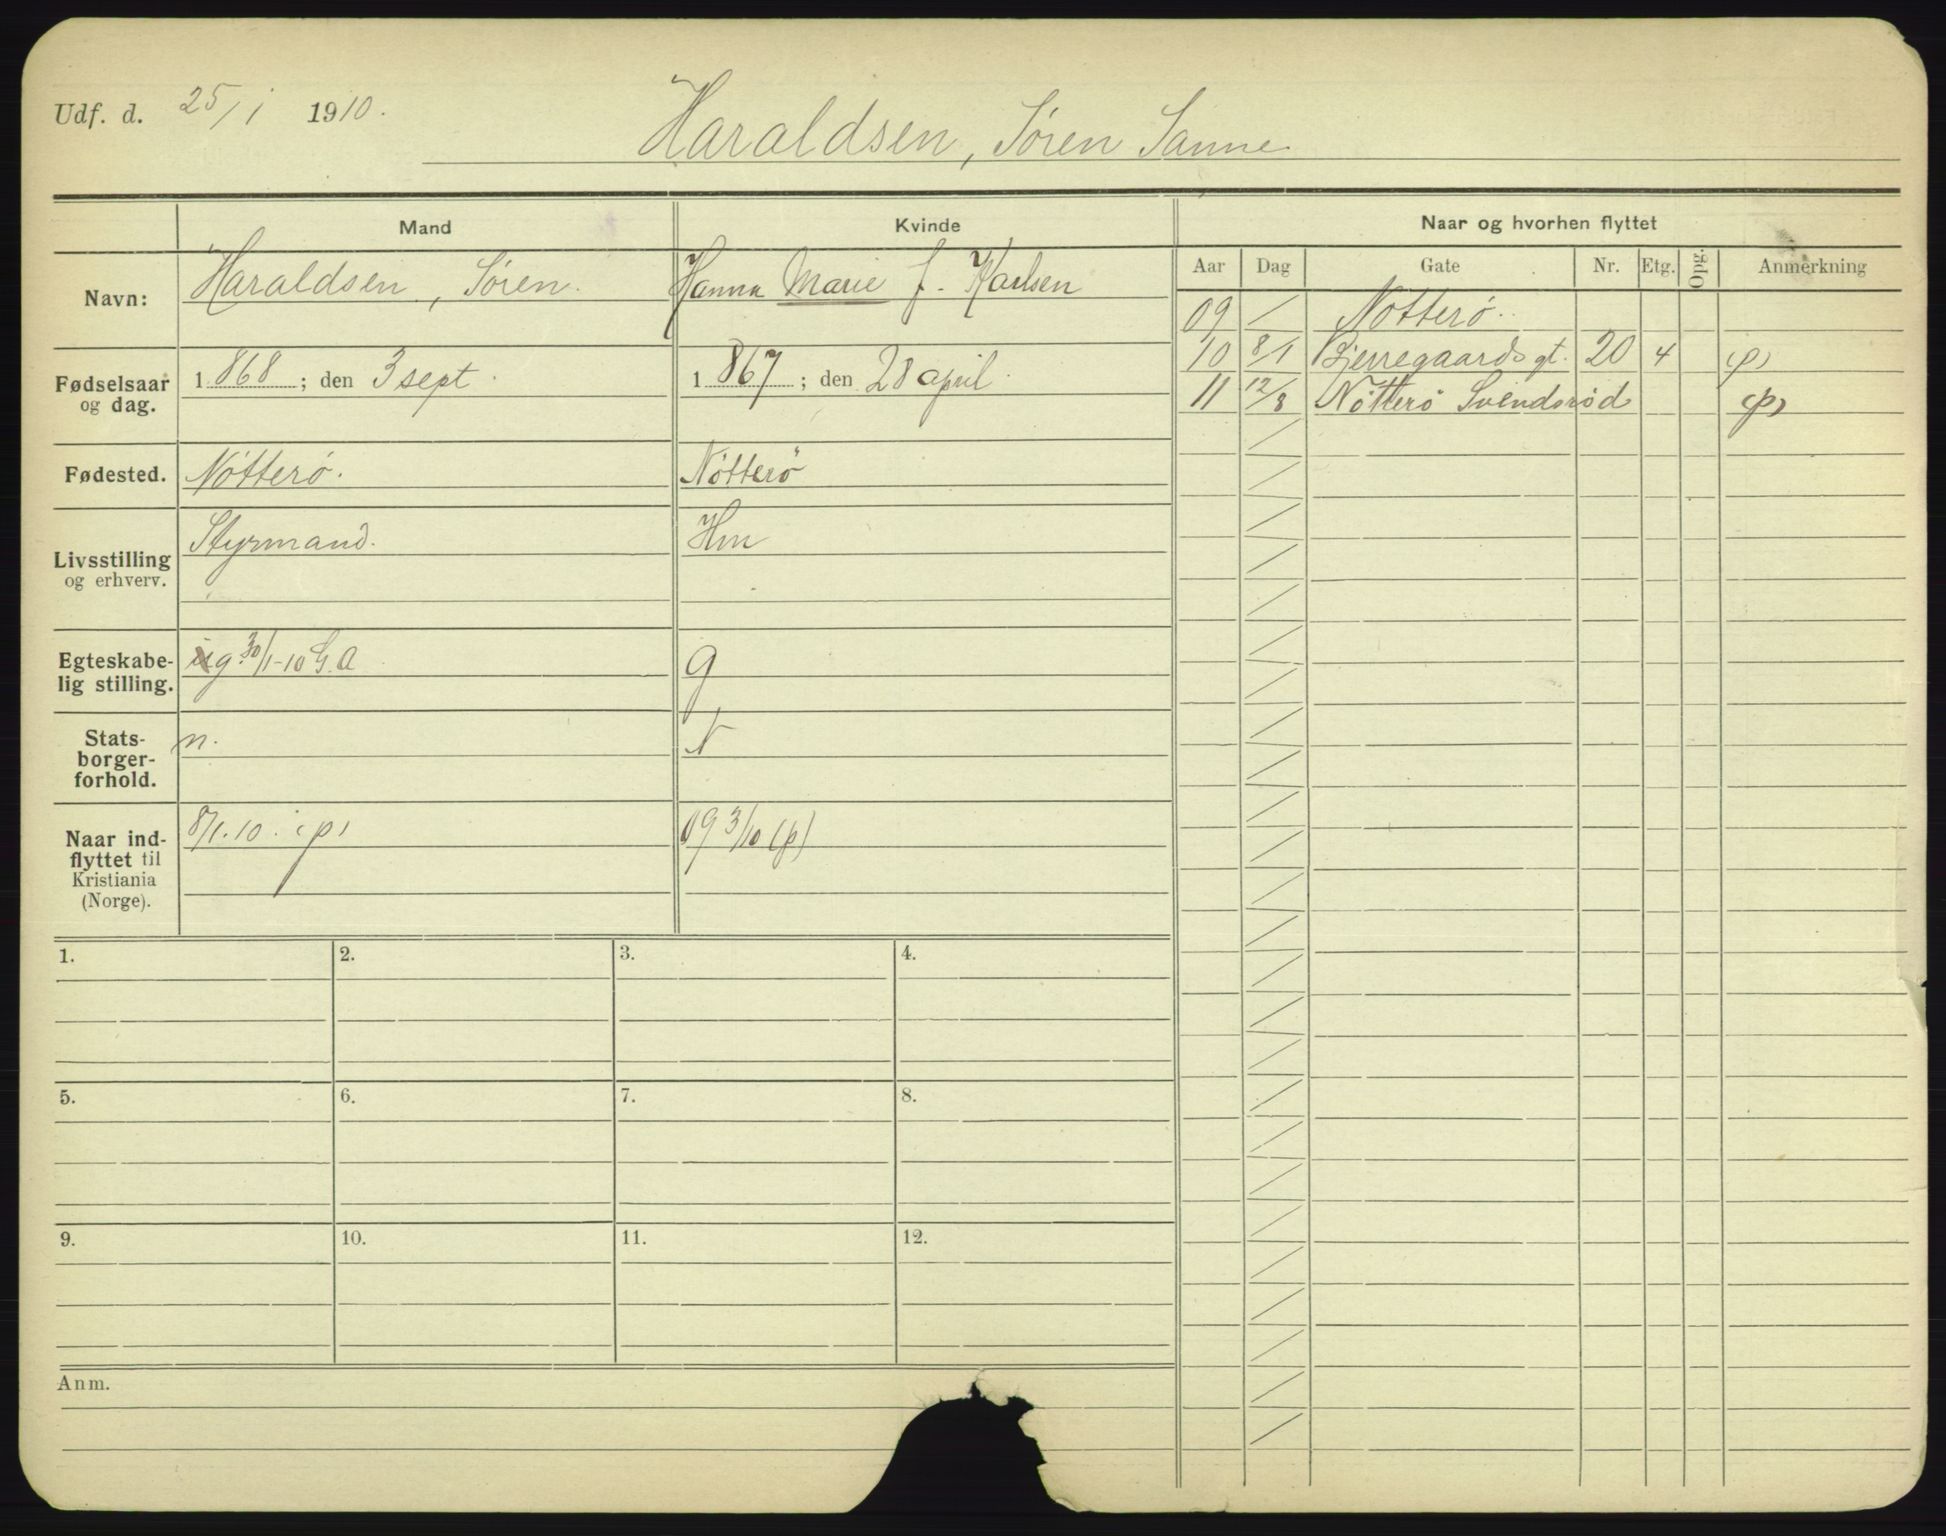 Udf. d. 25/1 1910.
Haraldsen, Søren Sanne
Mand
Kvinde
Naar og hvorhen flyttet
Aar Dag Gate Nr. Etg. Opg. Anmerkning
Navn: Haraldsen, Søren. Hanna Marie f. Karlsen
09 / Nötterö.
10 8/1 Bjerregaardsgt. 20 4 (p)
11 12/8 Nötterö Svendsrød (p)
Fødselsaar og dag. 1868; den 3 sept. 1867; den 28 april.
Fødested. Nötterö. Nötterö
Livsstilling og erhverv. Styrmand. Hm
Egteskabe-
lig stilling. g. 30/1-10 G.A g
Stats-
borger-
forhold. n. N
Naar ind-
flyttet til
Kristiania
(Norge). 8/1.10. (p) 09 3/10 (p)
1. 2. 3. 4.
5. 6. 7. 8.
9. 10. 11. 12.
Anm.